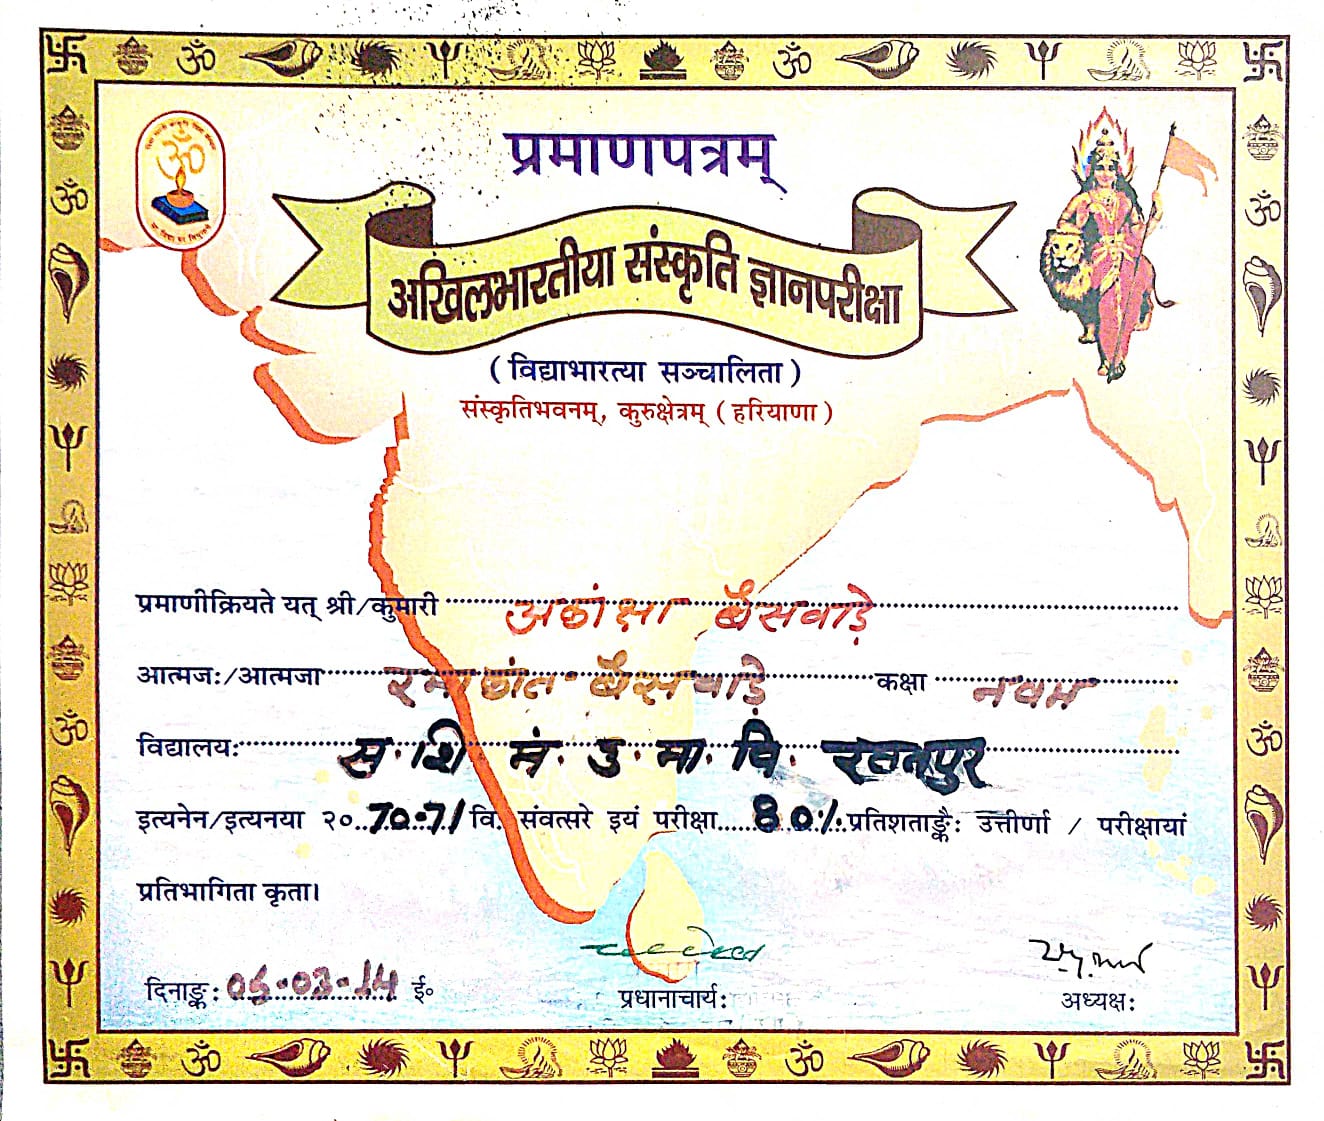 प्रमाणपत्रम्
अखिलभारतीया संस्कृति ज्ञानपरीक्षा
( विद्याभारत्या सञ्चालिता )
संस्कृतिभवनम्, कुरुक्षेत्रम् ( हरियाणा )
प्रमाणीक्रियते यत् श्री/कुमारी अकांक्षा बैसवाड़े
आत्मजः/आत्मजा रमाकांत बैसवाड़े कक्षा नवम
विद्यालयः स. शि मं. उ. मा. वि. रतनपुर
इत्यनेन/इत्यनया २०70-71 वि. संवत्सरे इयं परीक्षा 80% प्रतिशताङ्कैः उत्तीर्णा / परीक्षायां
प्रतिभागिता कृता।
दिनाङ्कः 05-03-14 ई०
प्रधानाचार्यः
अध्यक्षः